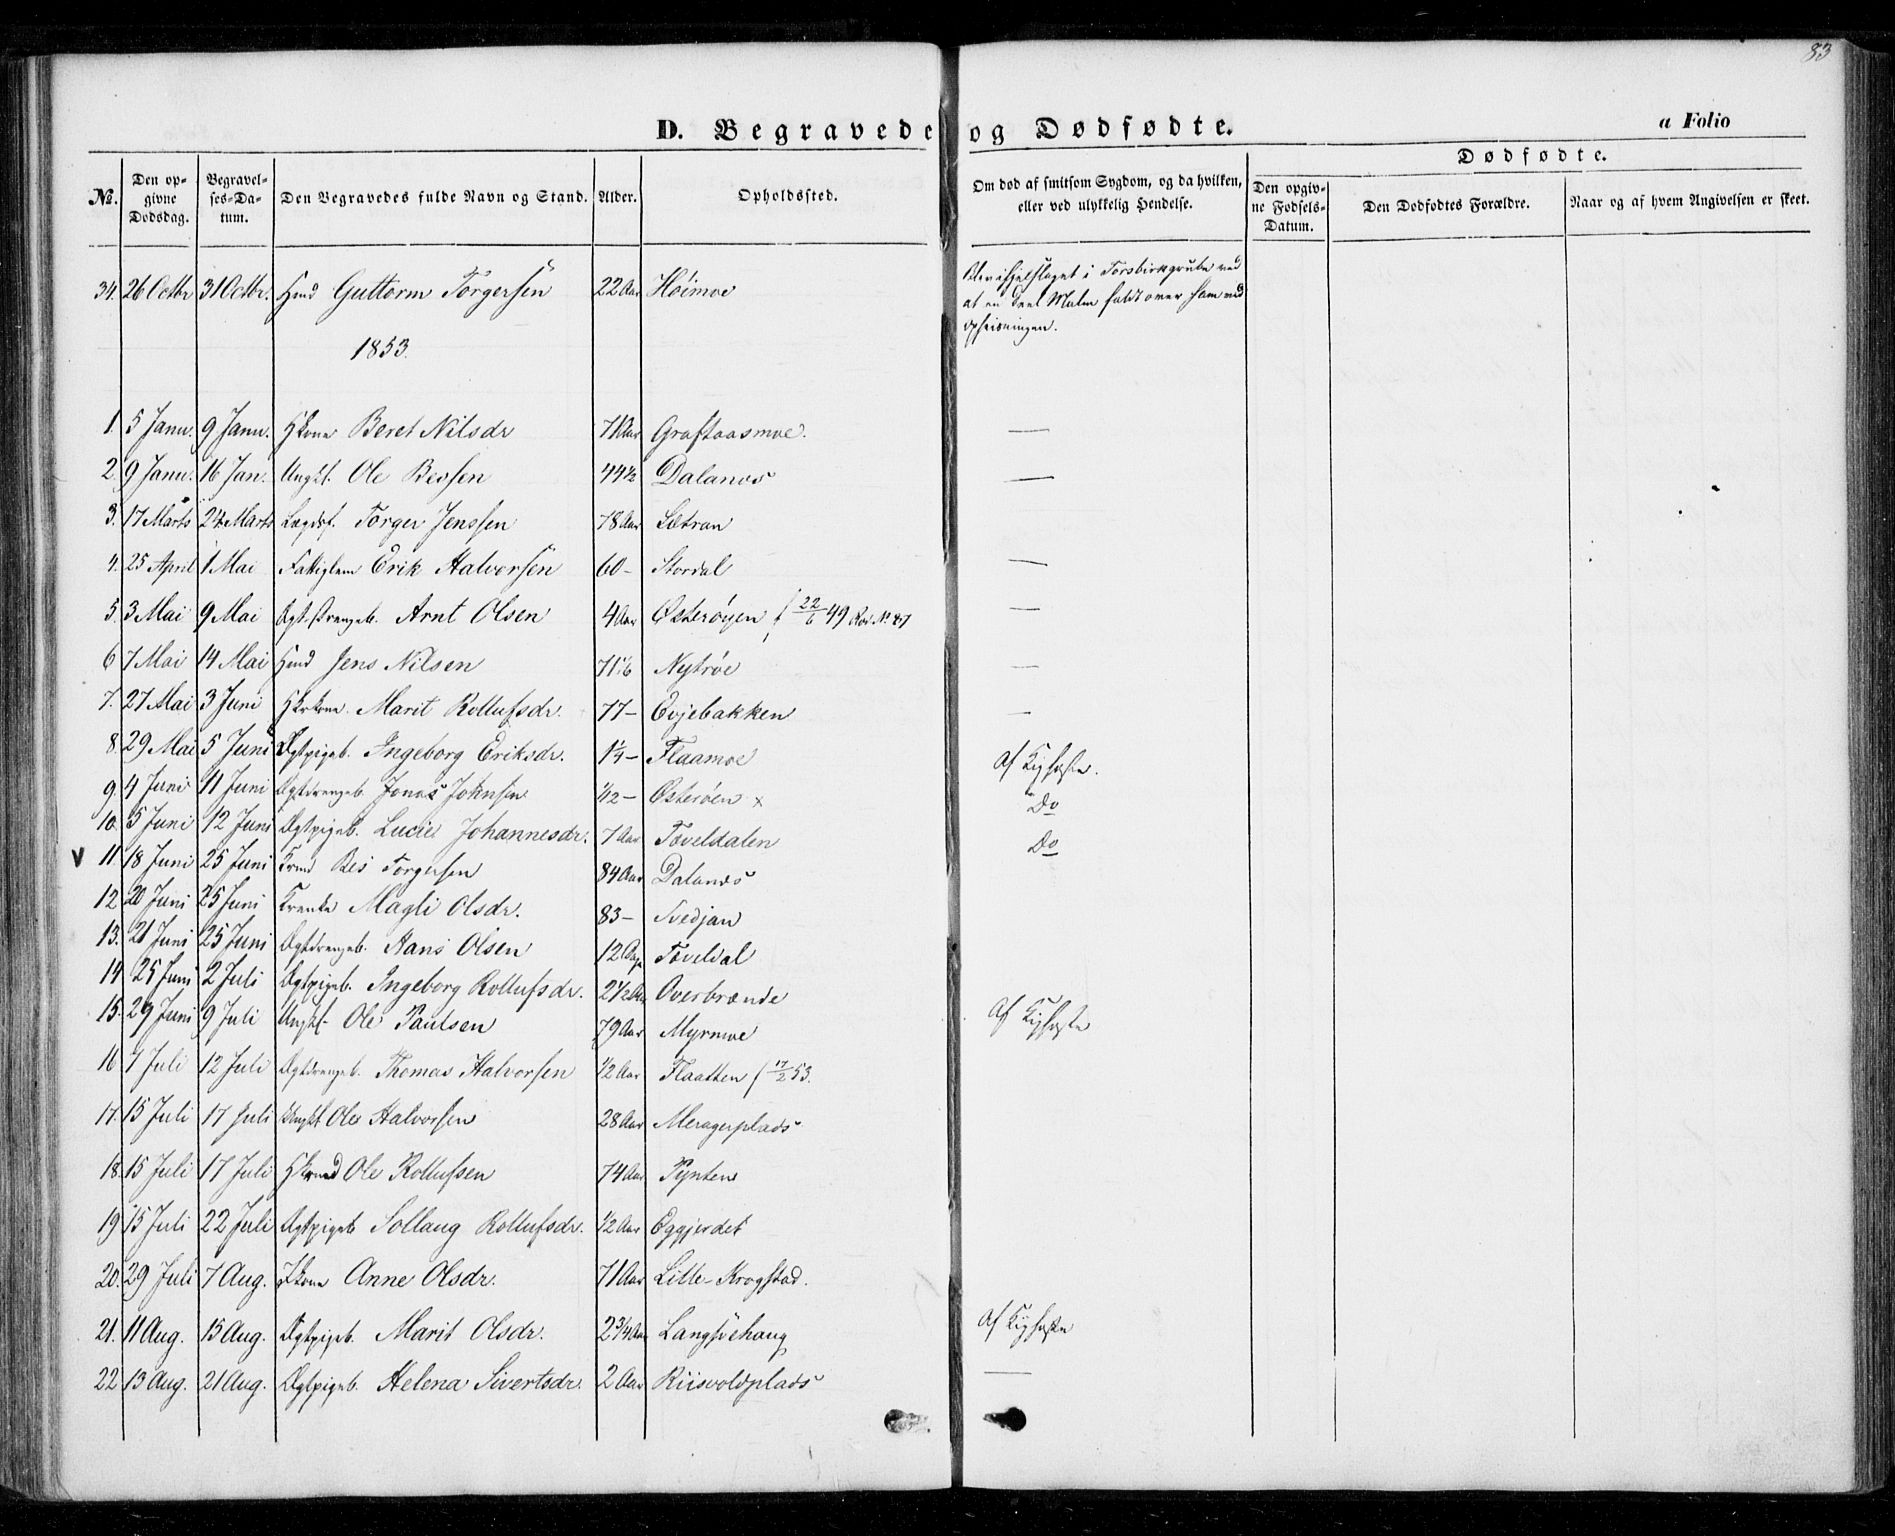 83
D. Begravede og Dødfødte.
a Folio
No.
Den opgivne Dødsdag.
Begravelses-Datum.
Den Begravedes fulde Navn og Stand.
Alder.
Opholdssted.
Om død af smitsom Sygdom, og da hvilken, eller ved ulykkelig Hendelse.
Dødfødte.
Den opgivne Fødsels-Datum.
Den Dødfødtes Forældre.
Naar og af hvem Angivelsen er skeet.
34. 26 Octbr 31 Octbr. Guttorm Torgersen 22 Aar Høimoe
Blev ihjelslaget i Torsbirkgrube ved
at en Deel Malm faldt over ham ved
ophisningen.
1853.
1. 5 Janu. 9 Janu. Hkone Beret Nilsdr 71 Aar Graftaasmoe. —
2. 9 Janu. 16 Jan. Ungkl. Ole Bersen 44½ Dalanes —
3. 17 Marts 24 Marts Lægdsl. Torger Jenssen 78 Aar Lætran
4. 25 April 1 Mai Fattiglem Erik Halvorsen 60 – Stordal —
5. 3 Mai 9 Mai Ægt. Drengeb. Arnt Olsen 4 Aar Østerøyen f 22/6 49 —
6 7 Mai 14 Mai Jens Nilsen 71 1/6 Nytrøe —
7. 27 Mai 3 Juni Marit Rollufsdr. 77 – Evjebakken —
8. 29 Mai 5 Juni Ægtpigeb. Ingeborg Eriksdr. 1¼ – Flaamoe Af Kighoste.
9 4 Juni 11 Juni Ægtdrengeb. Jonas Johnsen 1/12 – Østerøen x Do
10. 5 Juni 12 Juni Ægtpigeb. Lucie Johannesdr. 7 Aar Teveldalen Do
V 11. 18 Juni 25 Juni Bes Torgersen 84 Aar Dalanes
12 20 Juni 25 Juni Magli Olsdr. 83 – Svedjan
13. 21 Juni 25 Juni Ægtdrengeb. Hans Olsen 12 Dage Teveldal
14 25 Juni 2 Juli Ægtpigeb. Ingeborg Rollufsdr. 2½ Aar Overbrænde
15. 29 Juni 9 Juli Ungkl. Ole Paulsen 79 Aar Myrmoe Af Kighoste
16 7 Juli 12 Juli Ægtdrengeb. Thomas Halvorsen ½ Aar Flaatten f 17/2 53.
17. 15 Juli 17 Juli Ungkl Ole Halvorsen 28 Aar Meragerplads
18. 15 Juli 17 Juli Ole Rollufsen 74 Aar Pynten
19 15 Juli 22 Juli Ægtpigeb Sollaug Rollufsdr. ½ Aar Eggjerdet
20. 29 Juli 7 Aug. Anne Olsdr. 71 Aar Lille-Krogstad.
21. 11 Aug. 15 Aug. Ægtpigeb. Marit Olsdr. 2¾ Aar Langsøehaug Af Kighoste
22 13 Aug. 21 Aug. Ægtpigeb. Helena Sivertsdr. 2 Aar Riisvoldplads —